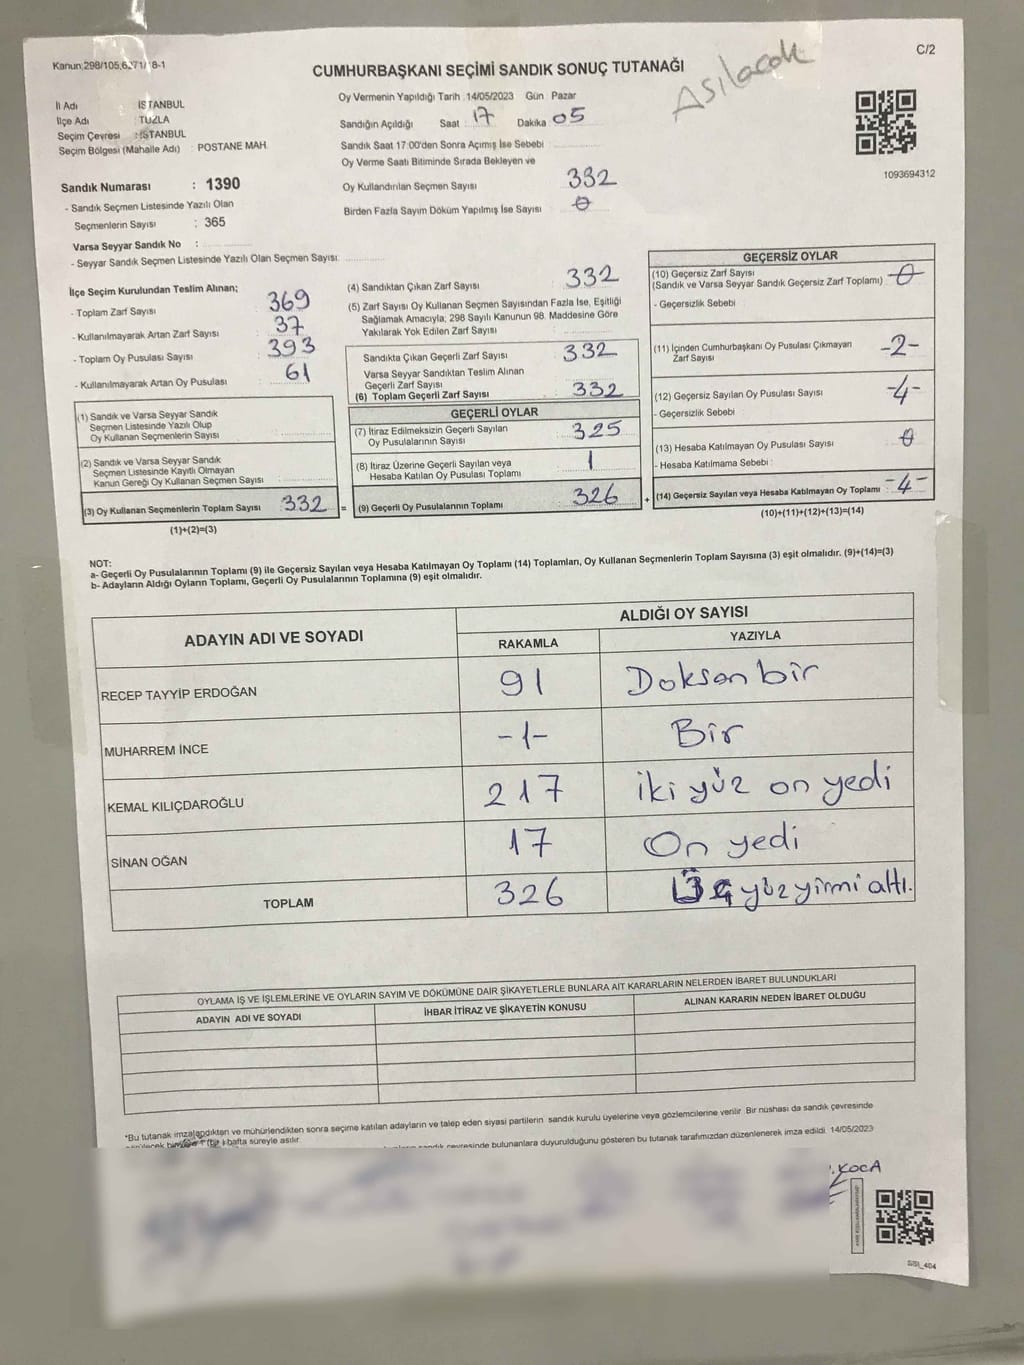 Kanun:298/105,6271/18-1
C/2
CUMHURBAŞKANI SEÇİMİ SANDIK SONUÇ TUTANAĞI
Asılacak
İl Adı : İSTANBUL
İlçe Adı : TUZLA
Seçim Çevresi : İSTANBUL
Seçim Bölgesi (Mahalle Adı) : POSTANE MAH.
Oy Vermenin Yapıldığı Tarih :14/05/2023 Gün Pazar
Sandığın Açıldığı Saat : 17 Dakika 05
Sandık Saat 17:00'den Sonra Açımış İse Sebebi :
Oy Verme Saati Bitiminde Sırada Bekleyen ve
Oy Kullandırılan Seçmen Sayısı 332
Birden Fazla Sayım Döküm Yapılmış İse Sayısı 0
1093694312
Sandık Numarası : 1390
- Sandık Seçmen Listesinde Yazılı Olan
Seçmenlerin Sayısı : 365
Varsa Seyyar Sandık No :
- Seyyar Sandık Seçmen Listesinde Yazılı Olan Seçmen Sayısı:
İlçe Seçim Kurulundan Teslim Alınan;
- Toplam Zarf Sayısı : 369
- Kullanılmayarak Artan Zarf Sayısı : 37
- Toplam Oy Pusulası Sayısı : 393
- Kullanılmayarak Artan Oy Pusulası : 61
(1) Sandık ve Varsa Seyyar Sandık
Seçmen Listesinde Yazılı Olup
Oy Kullanan Seçmenlerin Sayısı
(2) Sandık ve Varsa Seyyar Sandık
Seçmen Listesinde Kayıtlı Olmayan
Kanun Gereği Oy Kullanan Seçmen Sayısı
(3) Oy Kullanan Seçmenlerin Toplam Sayısı 332 =
(1)+(2)=(3)
(4) Sandıktan Çıkan Zarf Sayısı 332
(5) Zarf Sayısı Oy Kullanan Seçmen Sayısından Fazla İse, Eşitliği
Sağlamak Amacıyla; 298 Sayılı Kanunun 98. Maddesine Göre
Yakılarak Yok Edilen Zarf Sayısı
Sandıkta Çıkan Geçerli Zarf Sayısı 332
Varsa Seyyar Sandıktan Teslim Alınan
Geçerli Zarf Sayısı
(6) Toplam Geçerli Zarf Sayısı 332
GEÇERLİ OYLAR
(7) İtiraz Edilmeksizin Geçerli Sayılan
Oy Pusulalarının Sayısı 325
(8) İtiraz Üzerine Geçerli Sayılan veya
Hesaba Katılan Oy Pusulası Toplamı 1
(9) Geçerli Oy Pusulalarının Toplamı 326 +
GEÇERSİZ OYLAR
(10) Geçersiz Zarf Sayısı
(Sandık ve Varsa Seyyar Sandık Geçersiz Zarf Toplamı) : 0
- Geçersizlik Sebebi
(11) İçinden Cumhurbaşkanı Oy Pusulası Çıkmayan
Zarf Sayısı -2-
(12) Geçersiz Sayılan Oy Pusulası Sayısı -4-
- Geçersizlik Sebebi
(13) Hesaba Katılmayan Oy Pusulası Sayısı 0
- Hesaba Katılmama Sebebi :
(14) Geçersiz Sayılan veya Hesaba Katılmayan Oy Toplamı : -4-
(10)+(11)+(12)+(13)=(14)
NOT:
a- Geçerli Oy Pusulalarının Toplamı (9) ile Geçersiz Sayılan veya Hesaba Katılmayan Oy Toplamı (14) Toplamları, Oy Kullanan Seçmenlerin Toplam Sayısına (3) eşit olmalıdır. (9)+(14)=(3)
b- Adayların Aldığı Oyların Toplamı, Geçerli Oy Pusulalarının Toplamına (9) eşit olmalıdır.
ADAYIN ADI VE SOYADI
ALDIĞI OY SAYISI
RAKAMLA YAZIYLA
RECEP TAYYİP ERDOĞAN 91 Doksan bir
MUHARREM İNCE -1- Bir
KEMAL KILIÇDAROĞLU 217 iki yüz on yedi
SİNAN OĞAN 17 On yedi
TOPLAM 326 Üç yüz yirmi altı.
OYLAMA İŞ VE İŞLEMLERİNE VE OYLARIN SAYIM VE DÖKÜMÜNE DAİR ŞİKAYETLERLE BUNLARA AİT KARARLARIN NELERDEN İBARET BULUNDUKLARI
ADAYIN ADI VE SOYADI İHBAR İTİRAZ VE ŞİKAYETİN KONUSU ALINAN KARARIN NEDEN İBARET OLDUĞU
*Bu tutanak imzalandıktan ve mühürlendikten sonra seçime katılan adayların ve talep eden siyasi partilerin sandık kurulu üyelerine veya gözlemcilerine verilir. Bir nüshası da sandık çevresinde
hafta süreyle asılır.
sandık çevresinde bulunanlara duyurulduğunu gösteren bu tutanak tarafımızdan düzenlenerek imza edildi. 14/05/2023
KOCA
SSI_404